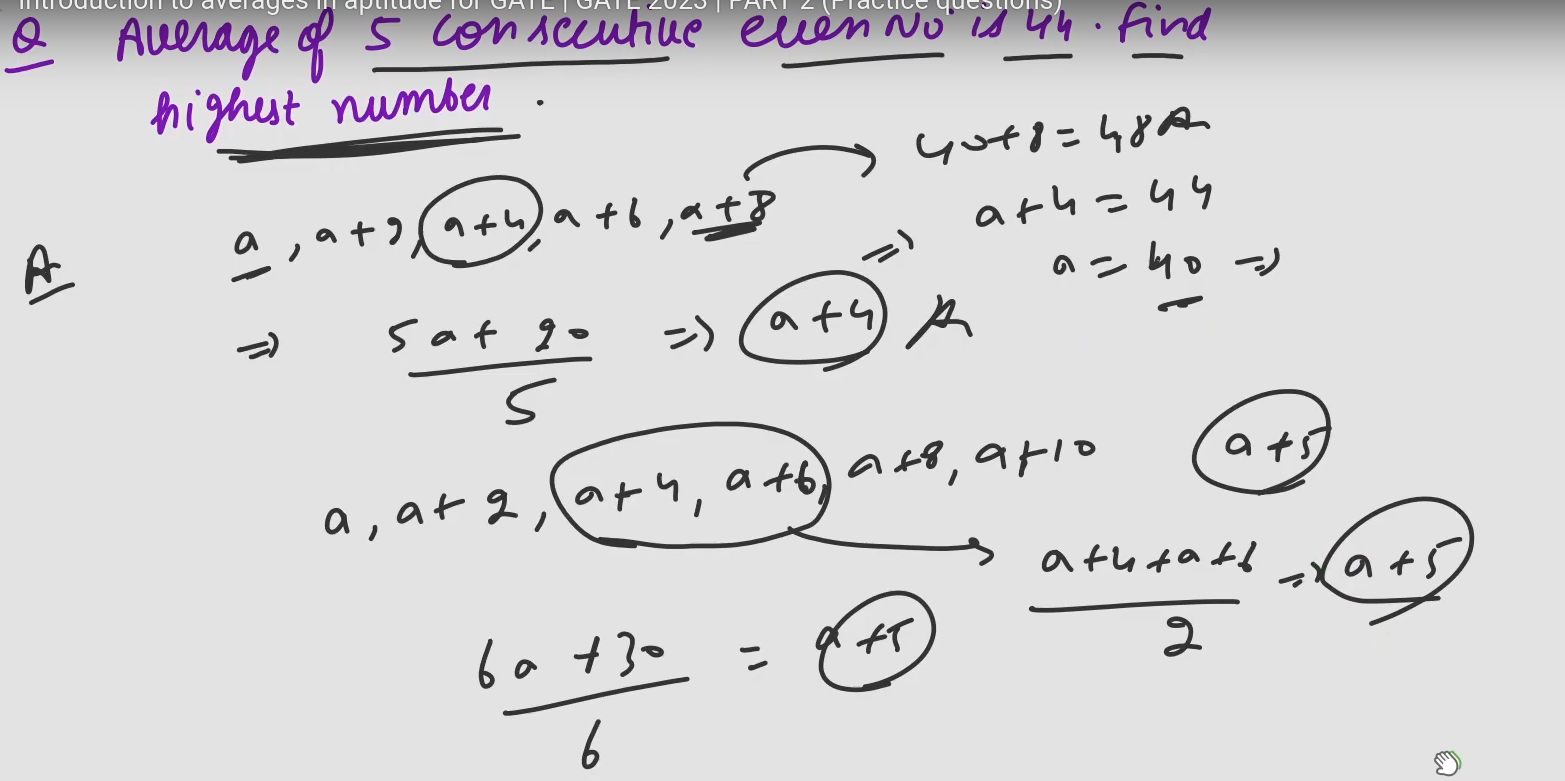 Introduction to averages in aptitude for GATE | GATE 2023 | PART 2 (Practice questions)
Q Average of 5 consecutive even No is 44. find
highest number.
40+8=48 A
A a, a+2, a+4, a+6, a+8
a+4=44
⇒ a=40 ⇒
⇒ 5a+20 / 5 ⇒ a+4 A
a, a+2, a+4, a+6, a+8, a+10 a+5
a+4+a+6 / 2 ⇒ a+5
6a+30 / 6 = a+5